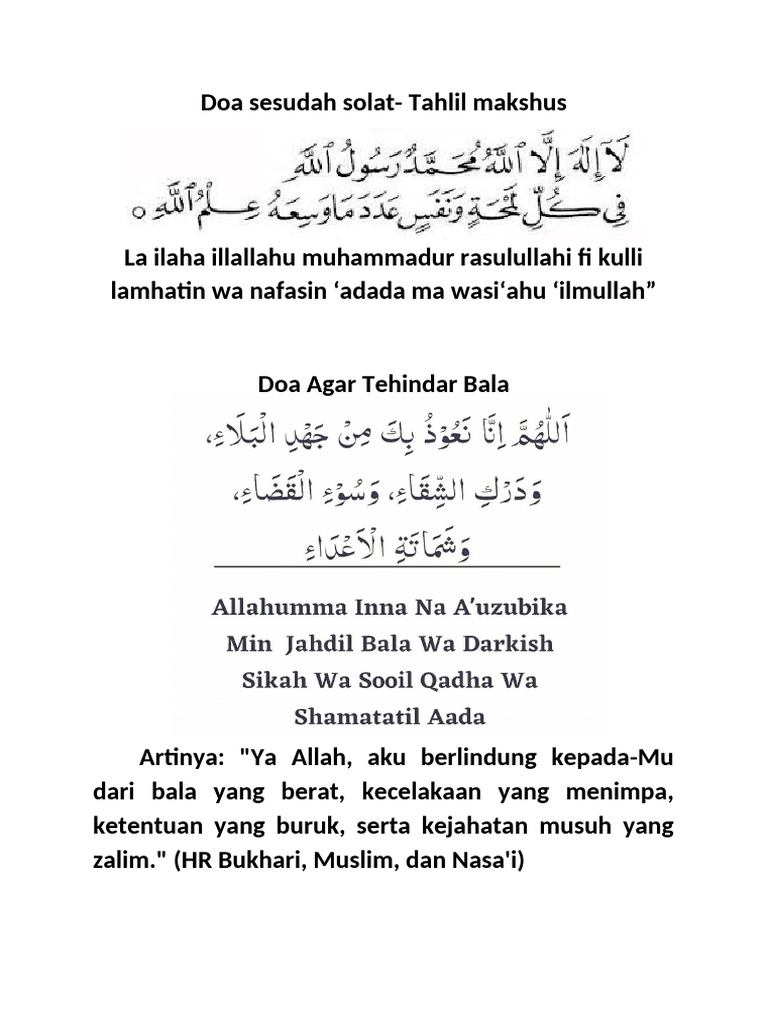 Doa sesudah solat- Tahlil makshus
لَآ إِلٰهَ إِلَّا ٱللَّهُ مُحَمَّدٌ رَسُولُ ٱللَّهِ
فِي كُلِّ لَمْحَةٍ وَنَفَسٍ عَدَدَ مَا وَسِعَهُ عِلْمُ ٱللَّهِ ○
La ilaha illallahu muhammadur rasulullahi fi kulli
lamhatin wa nafasin ‘adada ma wasi‘ahu ‘ilmullah”
Doa Agar Tehindar Bala
اَللّٰهُمَّ اِنَّا نَعُوْذُ بِكَ مِنْ جَهْدِ الْبَلَاءِ،
وَدَرْكِ الشِّقَاءِ، وَسُوْءِ الْقَضَاءِ،
وَشَمَاتَةِ الْاَعْدَاءِ
Allahumma Inna Na A'uzubika
Min Jahdil Bala Wa Darkish
Sikah Wa Sooil Qadha Wa
Shamatatil Aada
Artinya: "Ya Allah, aku berlindung kepada-Mu
dari bala yang berat, kecelakaan yang menimpa,
ketentuan yang buruk, serta kejahatan musuh yang
zalim." (HR Bukhari, Muslim, dan Nasa'i)